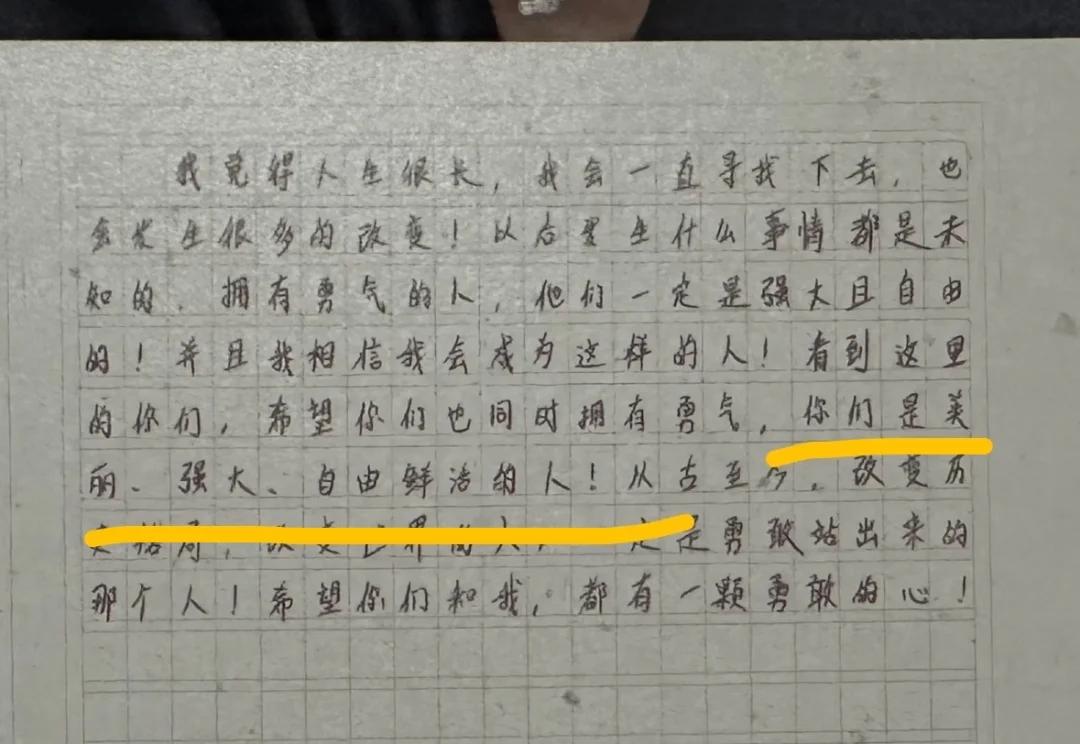 我觉得人生很长，我会一直寻找下去，也
会发生很多的改变！以后发生什么事情都是未
知的。拥有勇气的人，他们一定是强大且自由
的！并且我相信我会成为这样的人！看到这里
的你们，希望你们也同时拥有勇气，你们是美
丽、强大、自由鲜活的人！从古至今，改变历
是勇敢站出来的
那个人！希望你们和我，都有一颗勇敢的心！